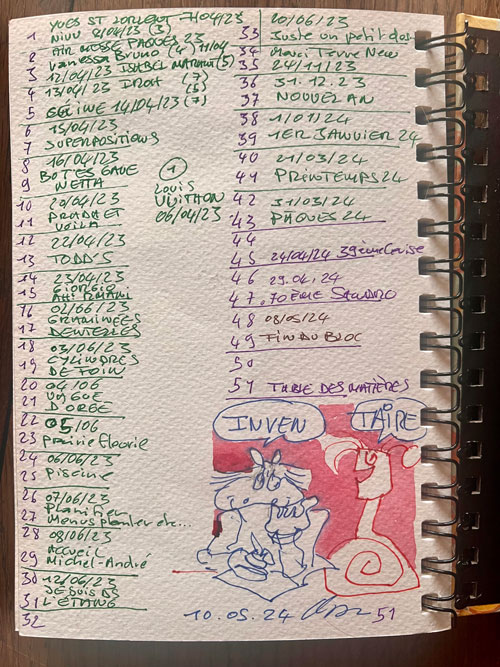 YVES ST LORENT 7/04/23
1 NIVU 8/04/23 (3)
AIR MESSE PÂQUES 23
2 Vanessa BRUNO (4) 11/04
3 12/04/23 ISABEL MARANT (5)
4 13/04/23 DROH (7)
(5)
5 CÉLINE 14/04/23 (7)
6 15/04/23
7 SUPERPOSITIONS
8 16/04/23
BOTTES GAVE
9 WETTA
10 20/04/23
PRADA ET
11 VOILA
12 22/04/23
13 TODD'S
14 23/04/23
15 GIORGIO
ARMANI
16 02/06/23
GRAMINÉES
17 DENTELLES
18 03/06/23
CYLINDRES
19 DE FOIN
20 04/06
21 VAGUE
D'ORGE
22 05/06
23 Prairie Fleurie
24 06/06/23
25 Piscine
26 07/06/23
Planifier
27 Menus planter etc...
28 08/06/23
Accueil
29 Michel-André
30 12/06/23
JE SUIS DS
31 L'ÉTANG
32
1
LOUIS
VUITTON
06/04/23
20/06/23
33 Juste un petit
34 Merci Terre New
35 24/11/23
36 31.12.23
37 NOUVEL AN
38 1/01/24
39 1ER JANVIER 24
40 21/03/24
41 PRINTEMPS 24
42 31/03/24
43 PÂQUES 24
44
45 24/04/24 39ème
46 29.04.24
47 70ÈME SANDRO
48 08/05/24
49 FIN DU BLOC
50
51 TABLE DES MATIÈRES
INVEN
TAIRE
10.05.24 51